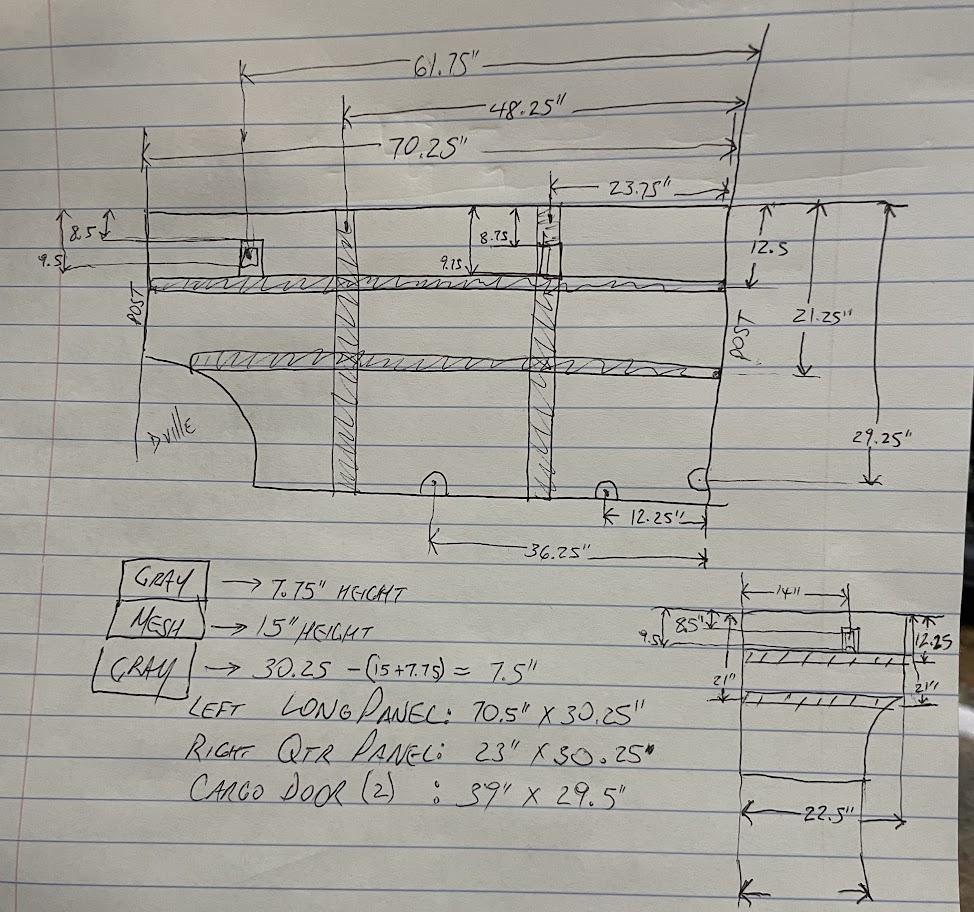 61.75"
48.25"
70.25"
23.75"
8.5
9.5
8.75
9.75
12.5
POST
POST
21.25"
29.25"
DVILLE
12.25"
36.25"
GRAY → 7.75" HEIGHT
MESH → 15" HEIGHT
GRAY → 30.25 - (15+7.75) = 7.5"
LEFT LONG PANEL: 70.5" X 30.25"
RIGHT QTR PANEL: 23" X 30.25"
CARGO DOOR (2) : 39" X 29.5"
14"
8.5"
9.5
12.25
21"
21"
22.5"